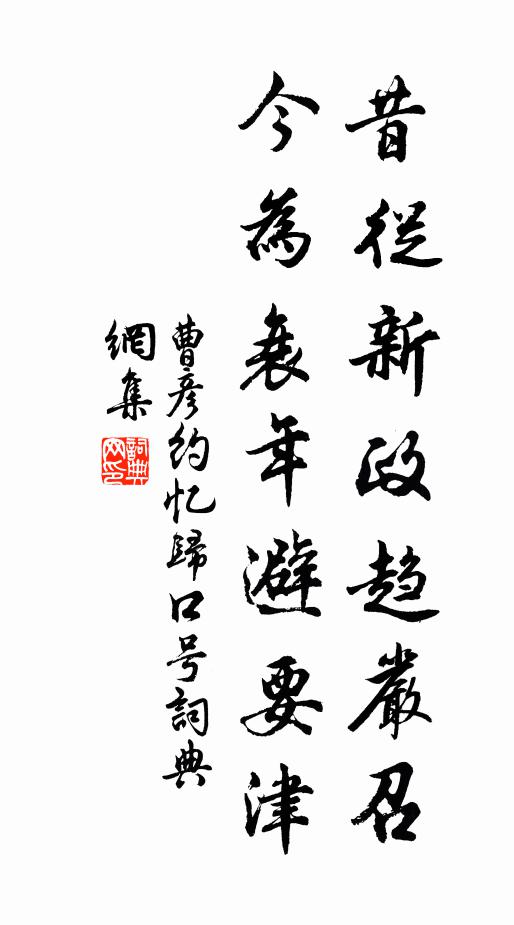 昔從新政趨嚴召
今為衰年避要津
曹彦約忆歸口号詞典
網集
詞典網印